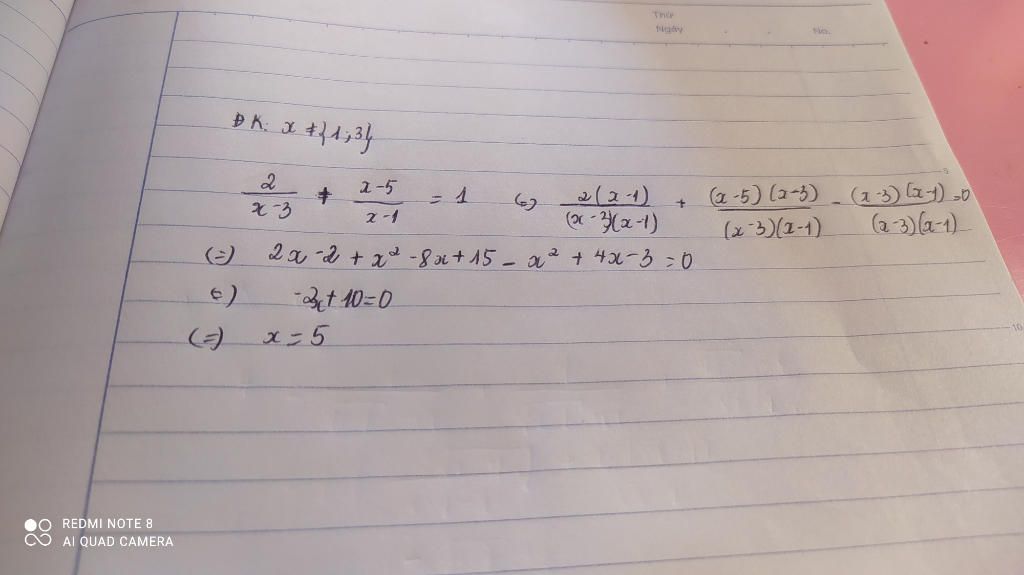 Thứ
Ngày . . No.
ĐK: x ≠ {1;3}
2/(x-3) + (x-5)/(x-1) = 1 (=) 2(x-1)/((x-3)(x-1)) + (x-5)(x-3)/((x-3)(x-1)) - (x-3)(x-1)/((x-3)(x-1)) = 0
(=) 2x - 2 + x² - 8x + 15 - x² + 4x - 3 = 0
(=) -2x + 10 = 0
(=) x = 5
10
REDMI NOTE 8
AI QUAD CAMERA